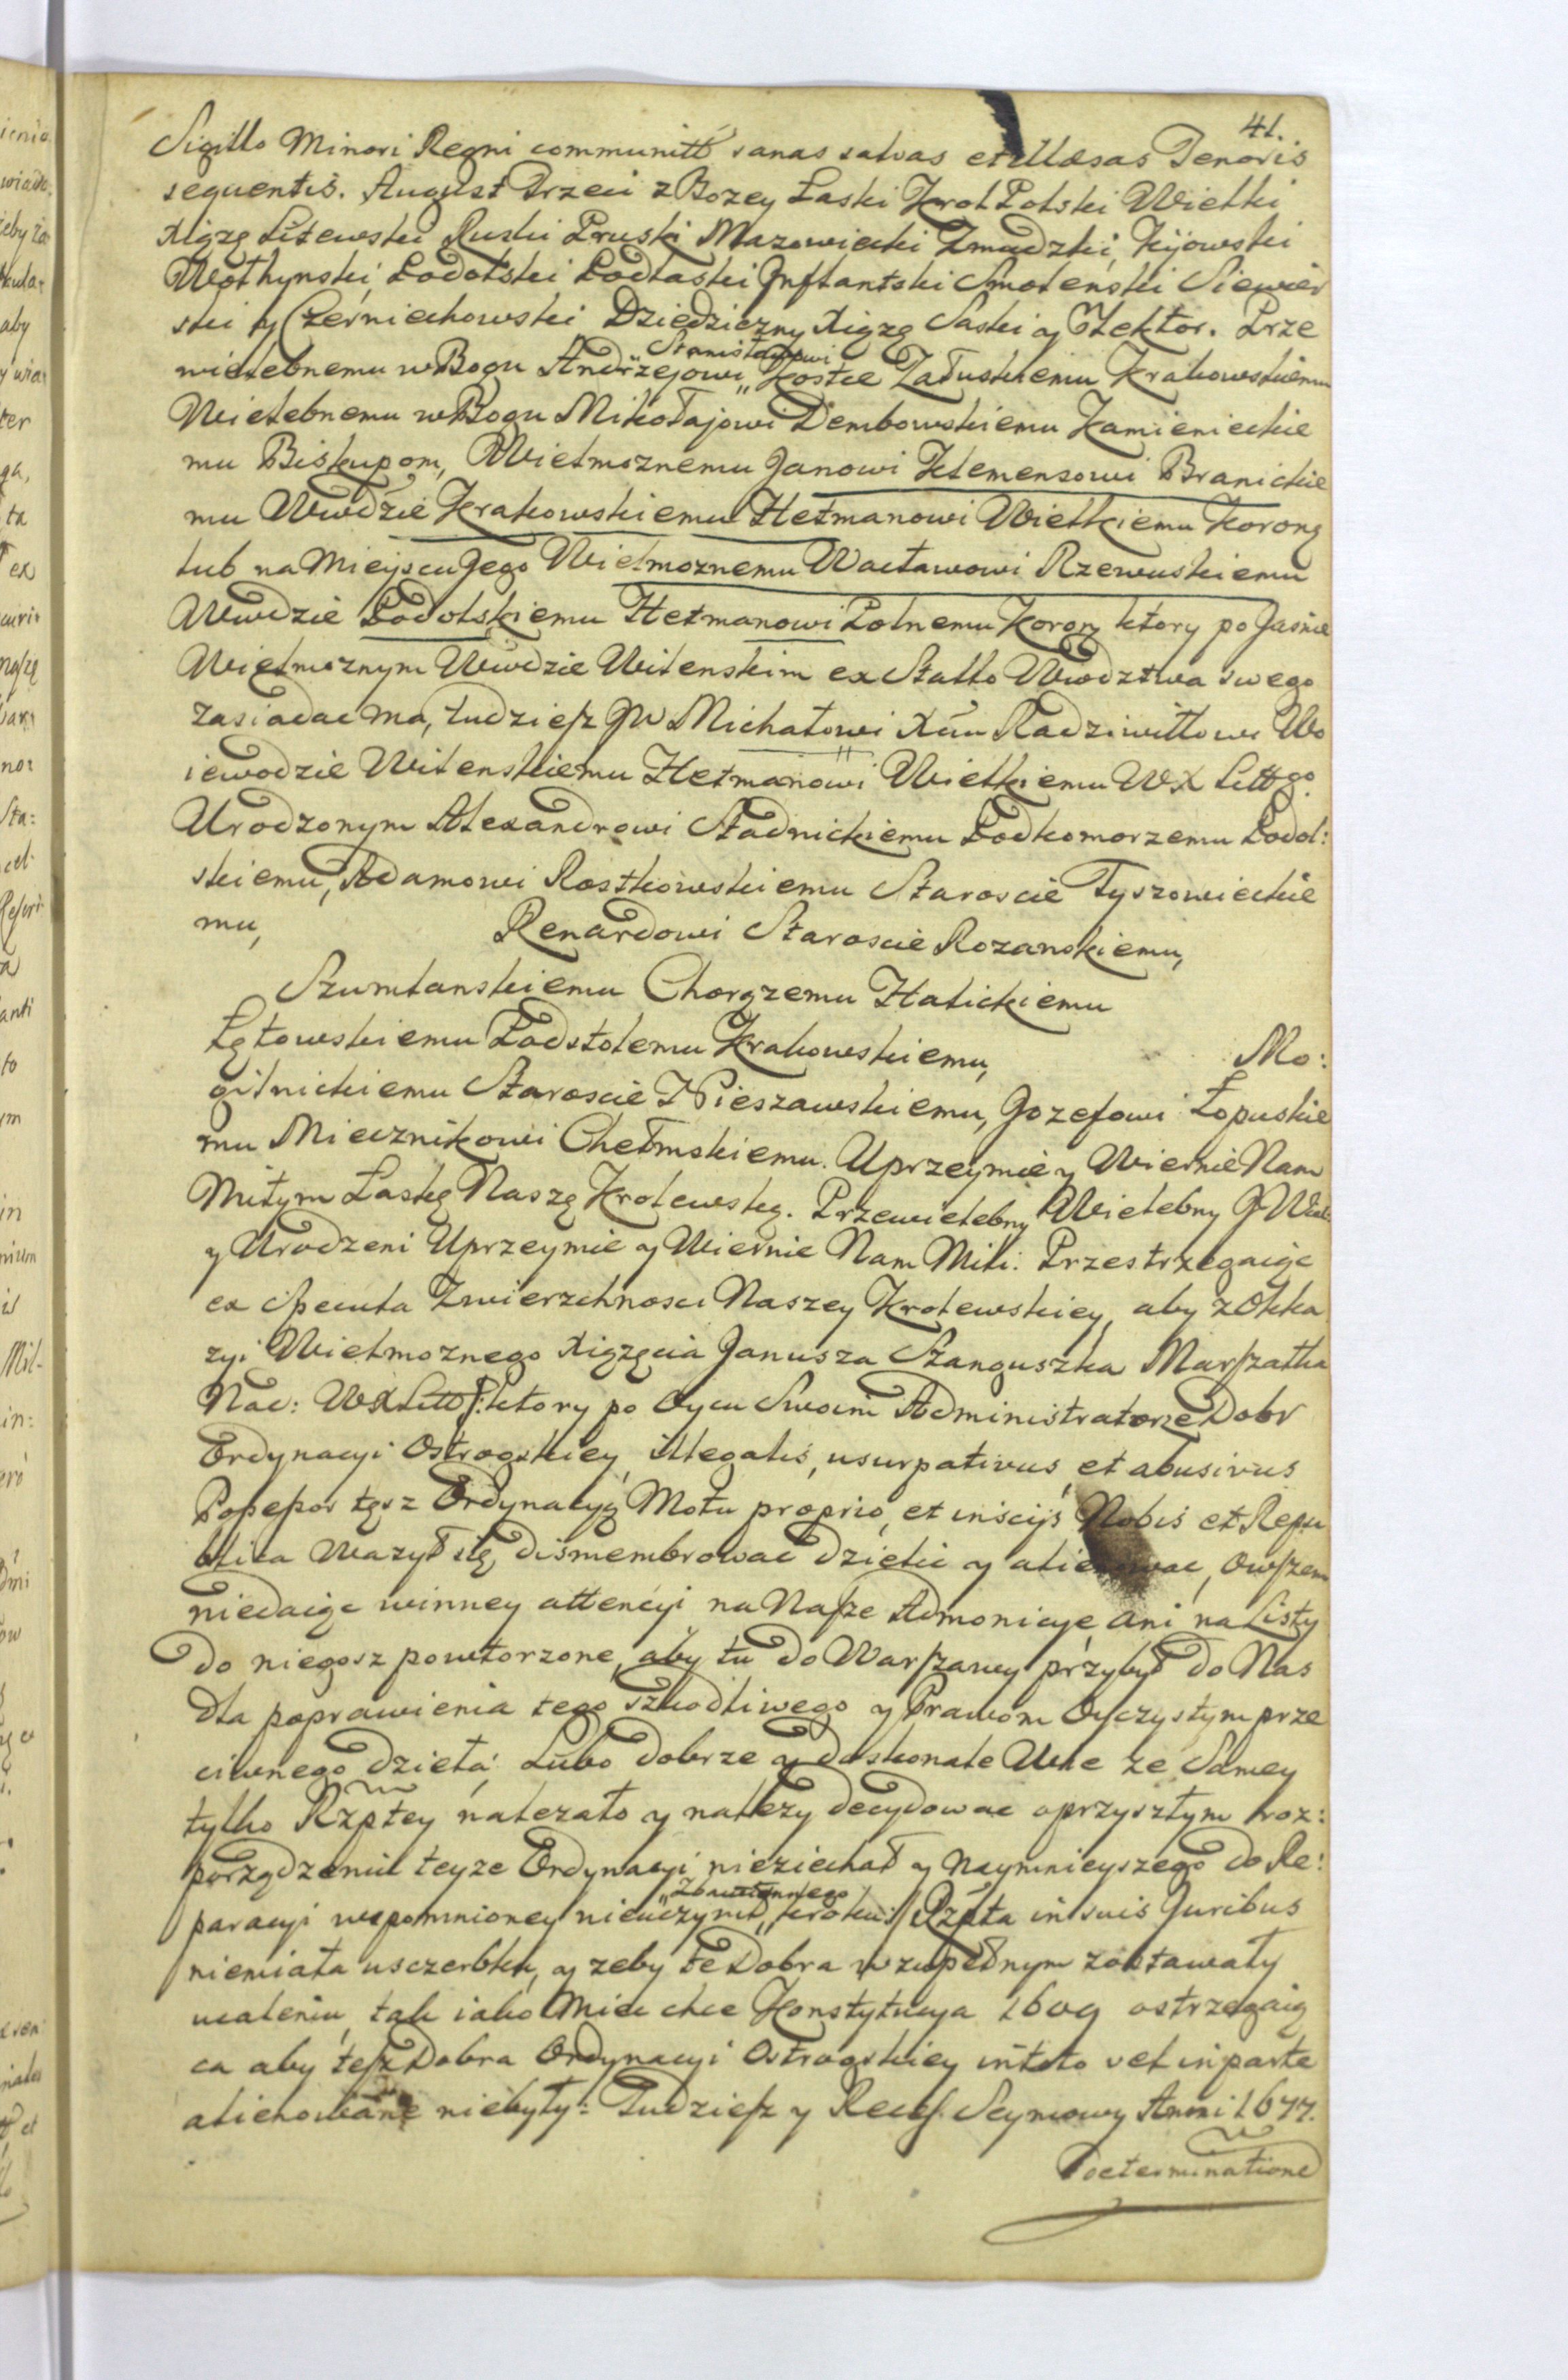 41.
Sigillo Minori Regni communitt sanas salvas et illæsas Tenoris
sequentis. August Trzeci z Bozey Łaski Krol Polski Wielki
Xiąze Litewski Ruski Pruski Mazowiecki Zmudzki, Kijowski
Wołhynski, Podolski Podlaski Inflantski Smolenski Siewier
ski y Czerniechowski Dziedziczny Xiąze Saski y Elektor. Prze
wielebnemu w Bogu Andrzejowi Stanisławowi Kostce Załuskiemu Krakowskiemu
Wielebnemu w Bogu Mikołajowi Dembowskiemu Kamienieckie
mu Biskupom, Wielmoznemu Janowi Klemensowi Branickie
mu Wwdzie Krakowskiemu Hetmanowi Wielkiemu Korong
lub na Mieyscu Jego Wielmoznemu Wacławowi Rzewuskiemu
Wwdzie Podolskiemu Hetmanowi Polnemu Korong ktory po Jasnie
Wielmoznym Wwdzie Wilenskim ex Stallo Wwdztwa swego
zasiadac ma, tudziesz JW Michałowi Xciu Radziwiłłowi Wo
iewodzie Wilenskiemu Hetmanowi Wielkiemu WX Littgo
Urodzonym Alexandrowi Stadnickiemu Podkomorzemu Podol:
skiemu, Adamowi Rostkowskiemu Staroscie Tyszowieckie
mu, Renardowi Staroscie Rozanskiemu,
Szumlanskiemu Chorązemu Halickiemu
Łętowskiemu Podstolemu Krakowskiemu, Mo:
gilnickiemu Staroscie Nieszawskiemu, Jozefowi Łopuskie
mu Miecznikowi Chełmskiemu. Uprzeymie y Wiernie Nam
Miłym Łaskę Naszą Krolewską. Przewielebny Wielebny JWiel:
y Urodzeni Uprzeymie y Wiernie Nam Mili: Przestrzegaiąc
ex specula Zwierzchnosci Naszey Krolewskiey, aby z Okka
zyi Wielmoznego Xiązęcia Janusza Szanguszka Marszałka
Nad: WXLitt ktory po Oycu Swoim Administratorze Dobr
Ordynacyi Ostrogskiey, illegalis, usurpativus et abusivus
Possessor tęsz Ordynacyą Motu proprio, et insciis Nobis et Repu
blica Wazył się, dismembrowac dzielic y alienowac, Owszem
niedaiąc winney attencyi na Nasze Admonicye ani na Listy
do niegosz powtorzone, aby tu do Warszawy przybył do Nas
dla poprawienia tego szkodliwego y Prawom Oyczystym prze
ciwnego dzieła, Lubo dobrze y doskonale Wie ze Samey
tylko Rzptey nalezało y nalezy decydowac o przyszłym roz:
porządzeniu teyze Ordynacyi nieziechał y Naymnieyszego do Re:
paracyi wspomnioney nieuczynił, kroku Rzpta in suis Juribus
niemiała uszczerbku, y zeby te Dobra w zupełnym zostawały
ucaleniu, tak iako Miec chce Konstytucya 1609 ostrzegaią
ca aby tesz Dobra Ordynacyi Ostrogskiey in toto vel in parte
alienowane niebyły: Tudziesz y Recess Seymowy Anni 1677.
Determinatione